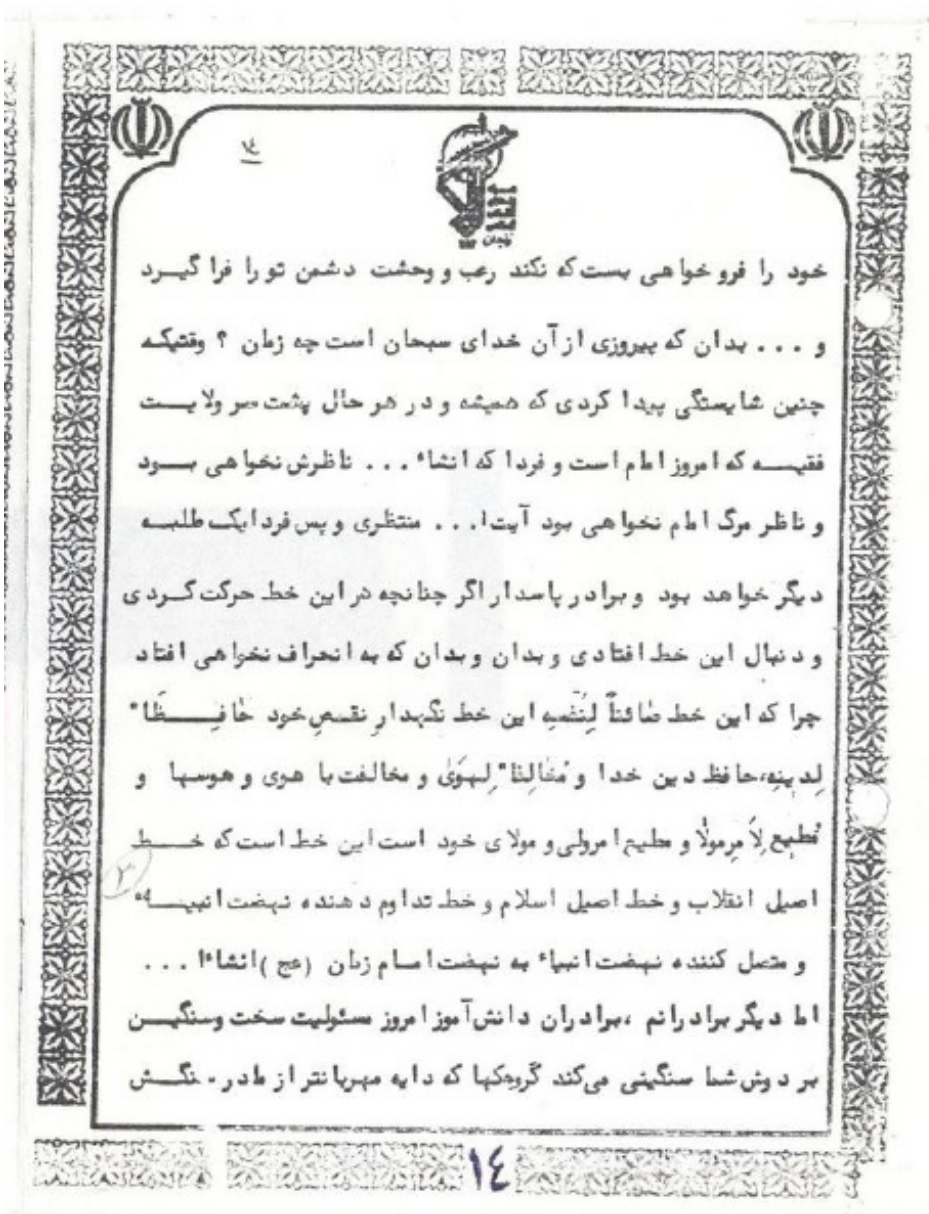 ۱۴
خود را فرو خواهی بست که نکند رعب و وحشت دشمن تو را فرا گیرد
و ... بدان که پیروزی از آن خدای سبحان است چه زمان ؟ وقتیکه
چنین شایستگی پیدا کردی که همیشه و در هر حال پشت سر ولایت
فقیه که امروز امام است و فردا که انشاء ... ناظرش نخواهی بود
و ناظر مرگ امام نخواهی بود آیت‌ا... منتظری و پس فردا یک طلبه
دیگر خواهد بود و برادر پاسدار اگر چنانچه در این خط حرکت کردی
و دنبال این خط افتادی و بدان و بدان که به انحراف نخواهی افتاد
چرا که این خط صٰائناً لِنَفْسِهِ این خط نگهدارِ نفسِ خود حٰافِظاً
لِدینِهِ، حافظ دین خدا و مُخٰالِفاً لِهَوٰی و مخالفت با هوی و هوسها و
مُطیعِ لِاَمرِمولٰا و مطیع امرولی و مولای خود است این خط است که خط
اصیل انقلاب و خط اصیل اسلام و خط تداوم دهنده نهضت انبیاء
و متصل کننده نهضت انبیاء به نهضت امام زمان (عج) انشاءا ...
اما دیگر برادرانم ، برادران دانش‌آموز امروز مسئولیت سخت و سنگین
بر دوش شما سنگینی می‌کند گروهکها که دایه مهربانتر از مادر
۲
۱۴